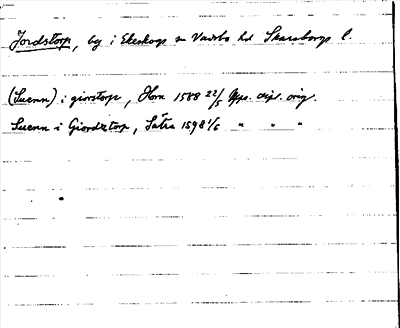 Jordstorp, by i Ekeskogs sn Vadsbo hd Skaraborgs l.
(Suenn) i giorstorp, Horn 1588 22/5 Upps. dipl. orig.
Suenn i Giordztorp, Sätra 1598 1/6 " " "